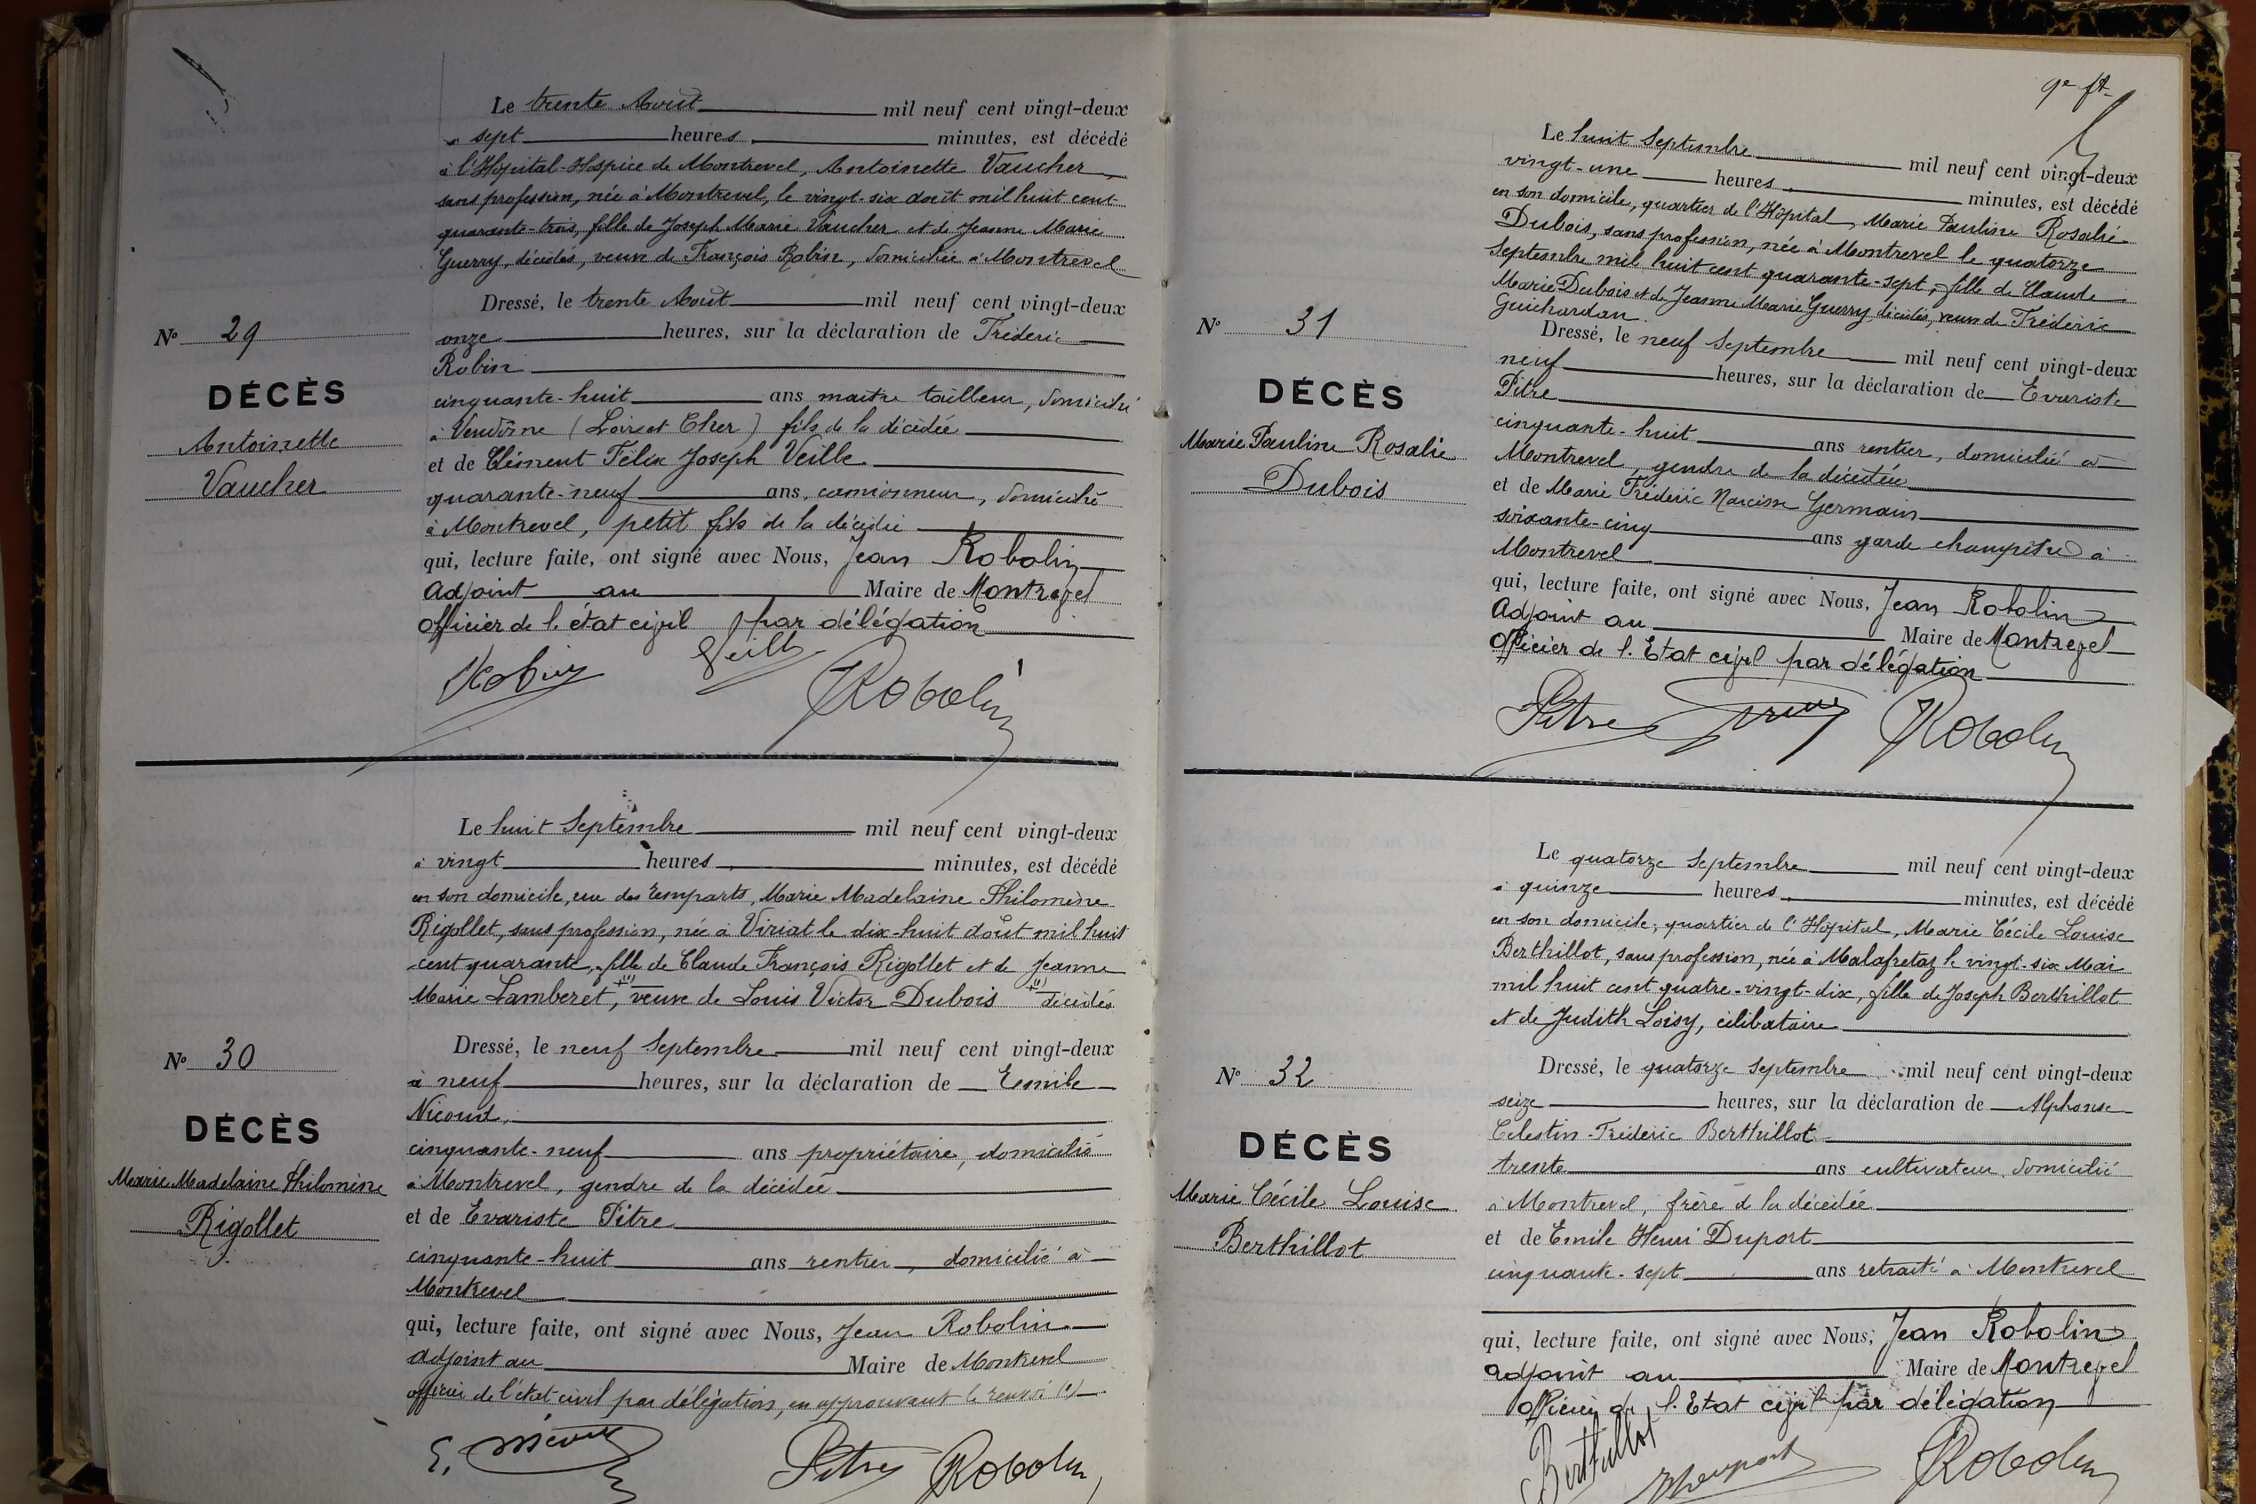 Le trente Août mil neuf cent vingt-deux
à sept heures minutes, est décédé
à l'Hôpital-Hospice de Montrevel, Antoinette Vaucher
sans profession, née à Montrevel, le vingt-six août mil huit cent
quarante-trois, fille de Joseph Marie Vaucher et de Jeanne Marie
Guerry, décédés, veuve de François Robin, domiciliée à Montrevel
Dressé, le trente Août mil neuf cent vingt-deux
onze heures, sur la déclaration de Fréderic
Robin
cinquante-huit ans maître tailleur, domicilié
à Vendôme (Loir et Cher) fils de la décédée
et de Clément Félix Joseph Veille
quarante-neuf ans, camionneur, domicilié
à Montrevel, petit fils de la décédée
qui, lecture faite, ont signé avec Nous, Jean Robolin
Adjoint au Maire de Montrevel
officier de l'état civil par délégation
Robin Veille Robolin
N° 29
DÉCÈS
Antoinette
Vaucher
Le huit Septembre mil neuf cent vingt-deux
à vingt heures minutes, est décédé
en son domicile, rue des Remparts, Marie Madelaine Philomène
Rigollet, sans profession, née à Viriat le dix-huit août mil huit
cent quarante, fille de Claude François Rigollet et de Jeanne
Marie Lamberet, veuve de Louis Victor Dubois décédés
Dressé, le neuf Septembre mil neuf cent vingt-deux
à neuf heures, sur la déclaration de Emile
cinquante-neuf ans propriétaire, domicilié
à Montrevel, gendre de la décédée
et de Evariste Pitre
cinquante-huit ans rentier, domicilié à
Montrevel
qui, lecture faite, ont signé avec Nous, Jean Robolin
adjoint au Maire de Montrevel
officier de l'état civil par délégation, en approuvant le renvoi (1)
E. Pitre Robolin
N° 30
DÉCÈS
Marie Madelaine Philomène
Rigollet
9e ft
Le huit Septembre mil neuf cent vingt-deux
vingt-une heures minutes, est décédé
en son domicile, quartier de l'Hôpital, Marie Pauline Rosalie
Dubois, sans profession, née à Montrevel le quatorze
Septembre mil huit cent quarante-sept, fille de Claude
Marie Dubois et de Jeanne Marie Guerry, décédés, veuve de Fréderic
Guichardan
Dressé, le neuf Septembre mil neuf cent vingt-deux
neuf heures, sur la déclaration de Evariste
Pitre
cinquante-huit ans rentier, domicilié à
Montrevel, gendre de la décédée
et de Marie Fréderic Narcisse Germain
soixante-cinq ans garde champêtre à
Montrevel
qui, lecture faite, ont signé avec Nous, Jean Robolin
Adjoint au Maire de Montrevel
Officier de l'Etat civil par délégation
Pitre Robolin
N° 31
DÉCÈS
Marie Pauline Rosalie
Dubois
Le quatorze Septembre mil neuf cent vingt-deux
à quinze heures minutes, est décédé
en son domicile, quartier de l'Hôpital, Marie Cécile Louise
Berthillot, sans profession, née à Malafretaz le vingt-six Mai
mil huit cent quatre-vingt-dix, fille de Joseph Berthillot
et de Judith Loisy, célibataire
Dressé, le quatorze Septembre mil neuf cent vingt-deux
seize heures, sur la déclaration de Alphonse
Célestin-Fréderic Berthillot
trente ans cultivateur domicilié
à Montrevel, frère de la décédée
et de Emile Henri Duport
cinquante-sept ans retraité à Montrevel
qui, lecture faite, ont signé avec Nous, Jean Robolin
adjoint au Maire de Montrevel
Officier de l'Etat civil par délégation
Berthillot Robolin
N° 32
DÉCÈS
Marie Cécile Louise
Berthillot